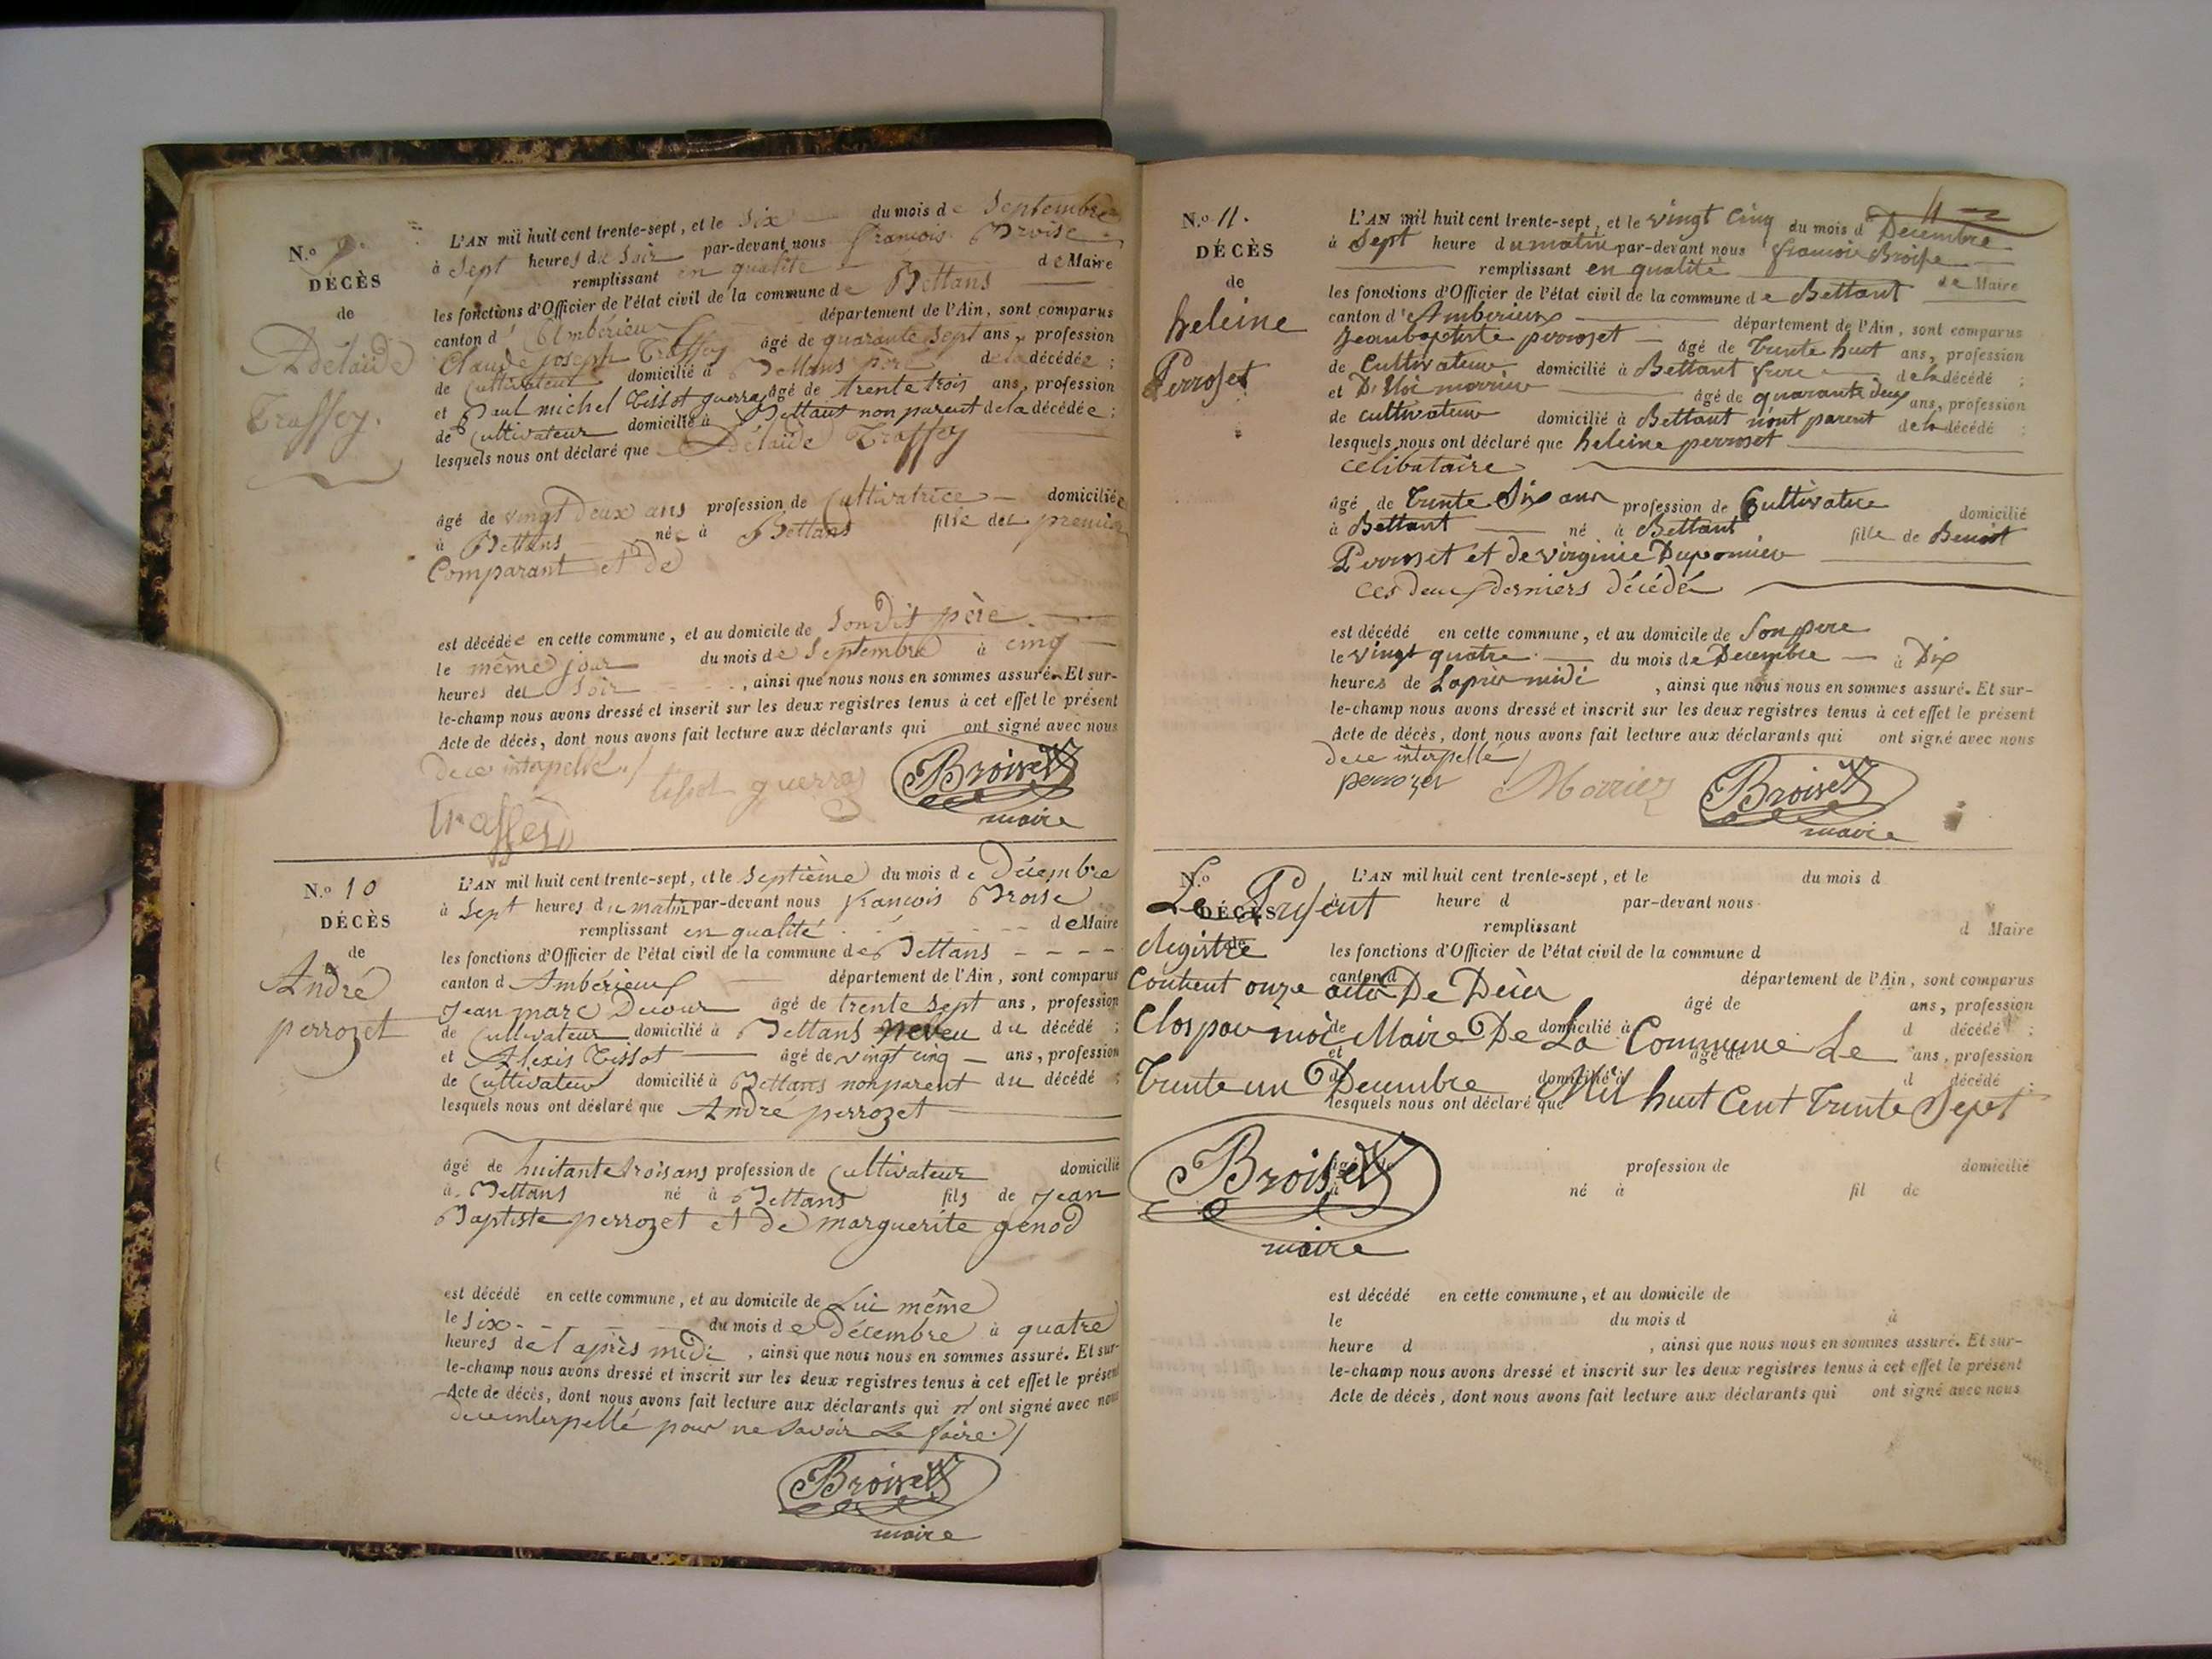 N.o 9.
DÉCÈS
de
Adelaïde
Traffey.
L'AN mil huit cent trente-sept, et le Six du mois de Septembre
à Sept heures du Soir par-devant nous françois Broise
remplissant en qualité de Maire
les fonctions d'Officier de l'état civil de la commune de Bettans
canton d'Ambérieux département de l'Ain, sont comparus
Claude joseph Traffey âgé de quarante Sept ans, profession
de Cultivateur domicilié à Bettans père de la décédée ;
et Paul michel Tissot guerraz âgé de trente trois ans, profession
de Cultivateur domicilié à Bettant non parent de la décédée ;
lesquels nous ont déclaré que Adélaïde Traffey
âgé de vingt Deux ans profession de Cultivatrice domiciliée
à Bettans née à Bettans fille deu premier
Comparant et de
est décédée en cette commune, et au domicile de Son Dit père
le même jour du mois de Septembre à cinq
heures deu Soir , ainsi que nous nous en sommes assuré. Et sur-
le-champ nous avons dressé et inscrit sur les deux registres tenus à cet effet le présent
Acte de décès, dont nous avons fait lecture aux déclarants qui ont signé avec nous
Dece interpellé /
Traffey tissot guerraz Broiset
maire
N.o 10
DÉCÈS
de
André
perrozet
L'AN mil huit cent trente-sept, et le Septième du mois de Décembre
à Sept heures du matin par-devant nous françois Broise
remplissant en qualité de Maire
les fonctions d'Officier de l'état civil de la commune de Bettans
canton d Ambérieux département de l'Ain, sont comparus
Jean marc Ducour âgé de trente Sept ans, profession
de Cultivateur domicilié à Bettans neveu du décédé ;
et Alexis Tissot âgé de vingt cinq ans, profession
de Cultivateur domicilié à Bettans non parent du décédé ;
lesquels nous ont déclaré que André perrozet
âgé de huitante trois ans profession de Cultivateur domicilié
à Bettans né à Bettans fils de Jean
Baptiste perrozet et de marguerite genod
est décédé en cette commune, et au domicile de Lui même
le Six du mois de Décembre à quatre
heures de l'après midi , ainsi que nous nous en sommes assuré. Et sur-
le-champ nous avons dressé et inscrit sur les deux registres tenus à cet effet le présent
Acte de décès, dont nous avons fait lecture aux déclarants qui n'ont signé avec nous
dece interpellé pour ne Savoir Le faire /
Broiset
maire
11
N.o 11.
DÉCÈS
de
heleine
Perroset
L'AN mil huit cent trente-sept, et le vingt Cinq du mois d Decembre
à Sept heure du matin par-devant nous francois Broise
remplissant en qualité de Maire
les fonctions d'Officier de l'état civil de la commune de Bettant
canton d'Amberieux département de l'Ain, sont comparus
Jeanbaptiste perroset âgé de Trente huit ans, profession
de Cultivateur domicilié à Bettant frere de la décédé ;
et morrier âgé de quarante deux ans, profession
de cultivateur domicilié à Bettant nont parent de la décédé ;
lesquels nous ont déclaré que heleine perroset
celibataire
âgé de Trente Six ans profession de Cultivatice domicilié
à Bettant né à Bettant fille de Benoit
Perroset et de virginie Dupomier
ces deux derniers décédé
est décédé en cette commune, et au domicile de Son pere
le vingt quatre du mois de Decembre à Dix
heures de Lapres midi , ainsi que nous nous en sommes assuré. Et sur-
le-champ nous avons dressé et inscrit sur les deux registres tenus à cet effet le présent
Acte de décès, dont nous avons fait lecture aux déclarants qui ont signé avec nous
dece interpellé /
perrozet Morrier Broiset
maire
N.o
DÉCÈS
de
L'AN mil huit cent trente-sept, et le du mois d
à heure d par-devant nous
remplissant d Maire
les fonctions d'Officier de l'état civil de la commune d
canton d département de l'Ain, sont comparus
âgé de ans, profession
de domicilié à d décédé ;
et âgé de ans, profession
de domicilié à d décédé ;
lesquels nous ont déclaré que
Le Present
Registre
Contient onze acte De Décès
Clos par moi Maire De La Commune Le
Trente un Decembre Mil huit Cent Trente Sept
Broiset
maire
âgé de profession de domicilié
à né à fil de
est décédé en cette commune, et au domicile de
le du mois d à
heure d , ainsi que nous nous en sommes assuré. Et sur-
le-champ nous avons dressé et inscrit sur les deux registres tenus à cet effet le présent
Acte de décès, dont nous avons fait lecture aux déclarants qui ont signé avec nous